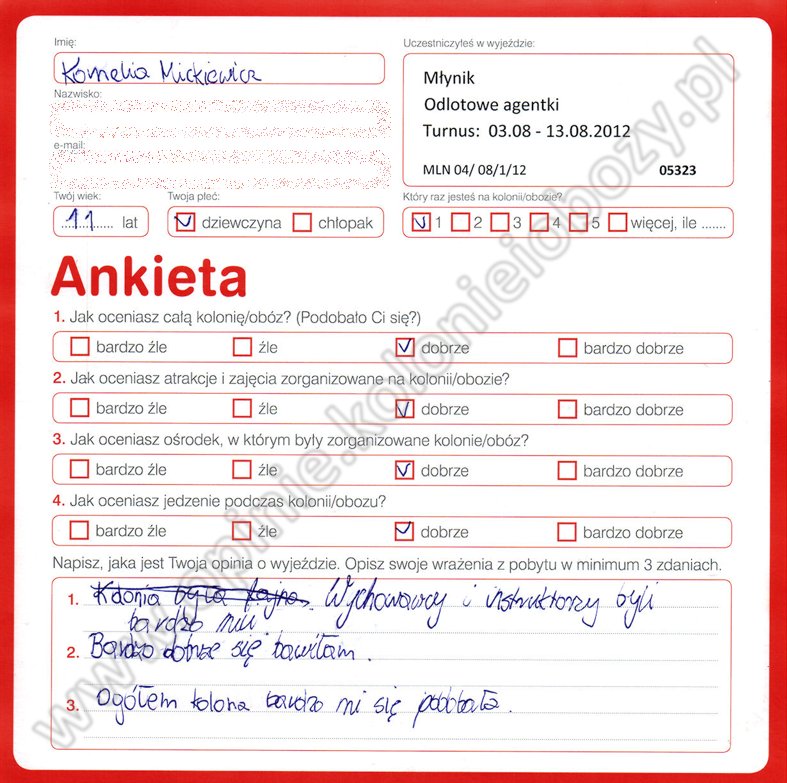 Imię:
Kornelia Mickiewicz
Nazwisko:
e-mail:
Twój wiek:
11 lat
Twoja płeć:
dziewczyna chłopak
Uczestniczyłeś w wyjeździe:
Młynik
Odlotowe agentki
Turnus: 03.08 - 13.08.2012
MLN 04/ 08/1/12 05323
Który raz jesteś na kolonii/obozie?
1 2 3 4 5 więcej, ile .......
Ankieta
1. Jak oceniasz całą kolonię/obóz? (Podobało Ci się?)
bardzo źle źle dobrze bardzo dobrze
2. Jak oceniasz atrakcje i zajęcia zorganizowane na kolonii/obozie?
bardzo źle źle dobrze bardzo dobrze
3. Jak oceniasz ośrodek, w którym były zorganizowane kolonie/obóz?
bardzo źle źle dobrze bardzo dobrze
4. Jak oceniasz jedzenie podczas kolonii/obozu?
bardzo źle źle dobrze bardzo dobrze
Napisz, jaka jest Twoja opinia o wyjeździe. Opisz swoje wrażenia z pobytu w minimum 3 zdaniach.
1. Kolonia była fajna. Wychowawcy i instruktorzy byli
bardzo mili.
2. Bardzo dobrze się bawiłam.
3. Ogółem kolona bardzo mi się podobała.
www.opinie.kolonieiobozy.pl